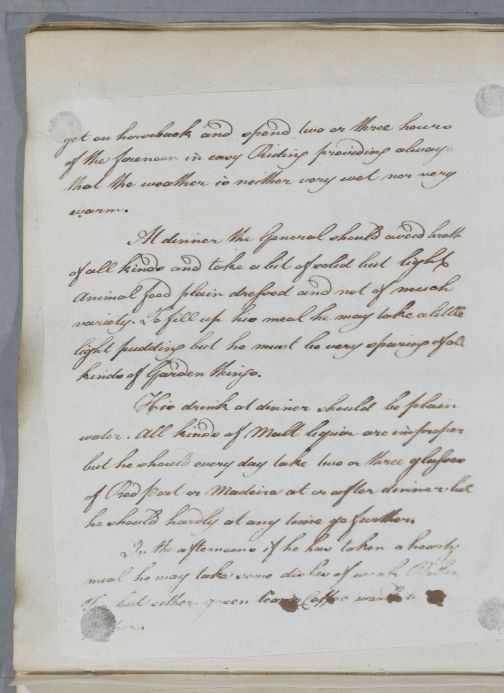 get on horseback and spend two or three hours
of the forenoon in easy Riding providing always
that the weather is neither very wet nor very
warm.
At dinner the General should avoid broth
of all kinds and take a bit of solid but light
Animal food plain dressed and not of much
variety. To fill up his meal he may take a little
light pudding but he must be very sparing of all
kinds of Garden things.
His drink at dinner should be plain
water. All kinds of Malt liquor are improper
but he should every day take two or three glasses
of Red Port or Madeira at or after dinner but
he should hardly at any time go further.
In the afternoons if he has taken a hearty
meal he may take some dishes of weak
but either green tea or Coffee would